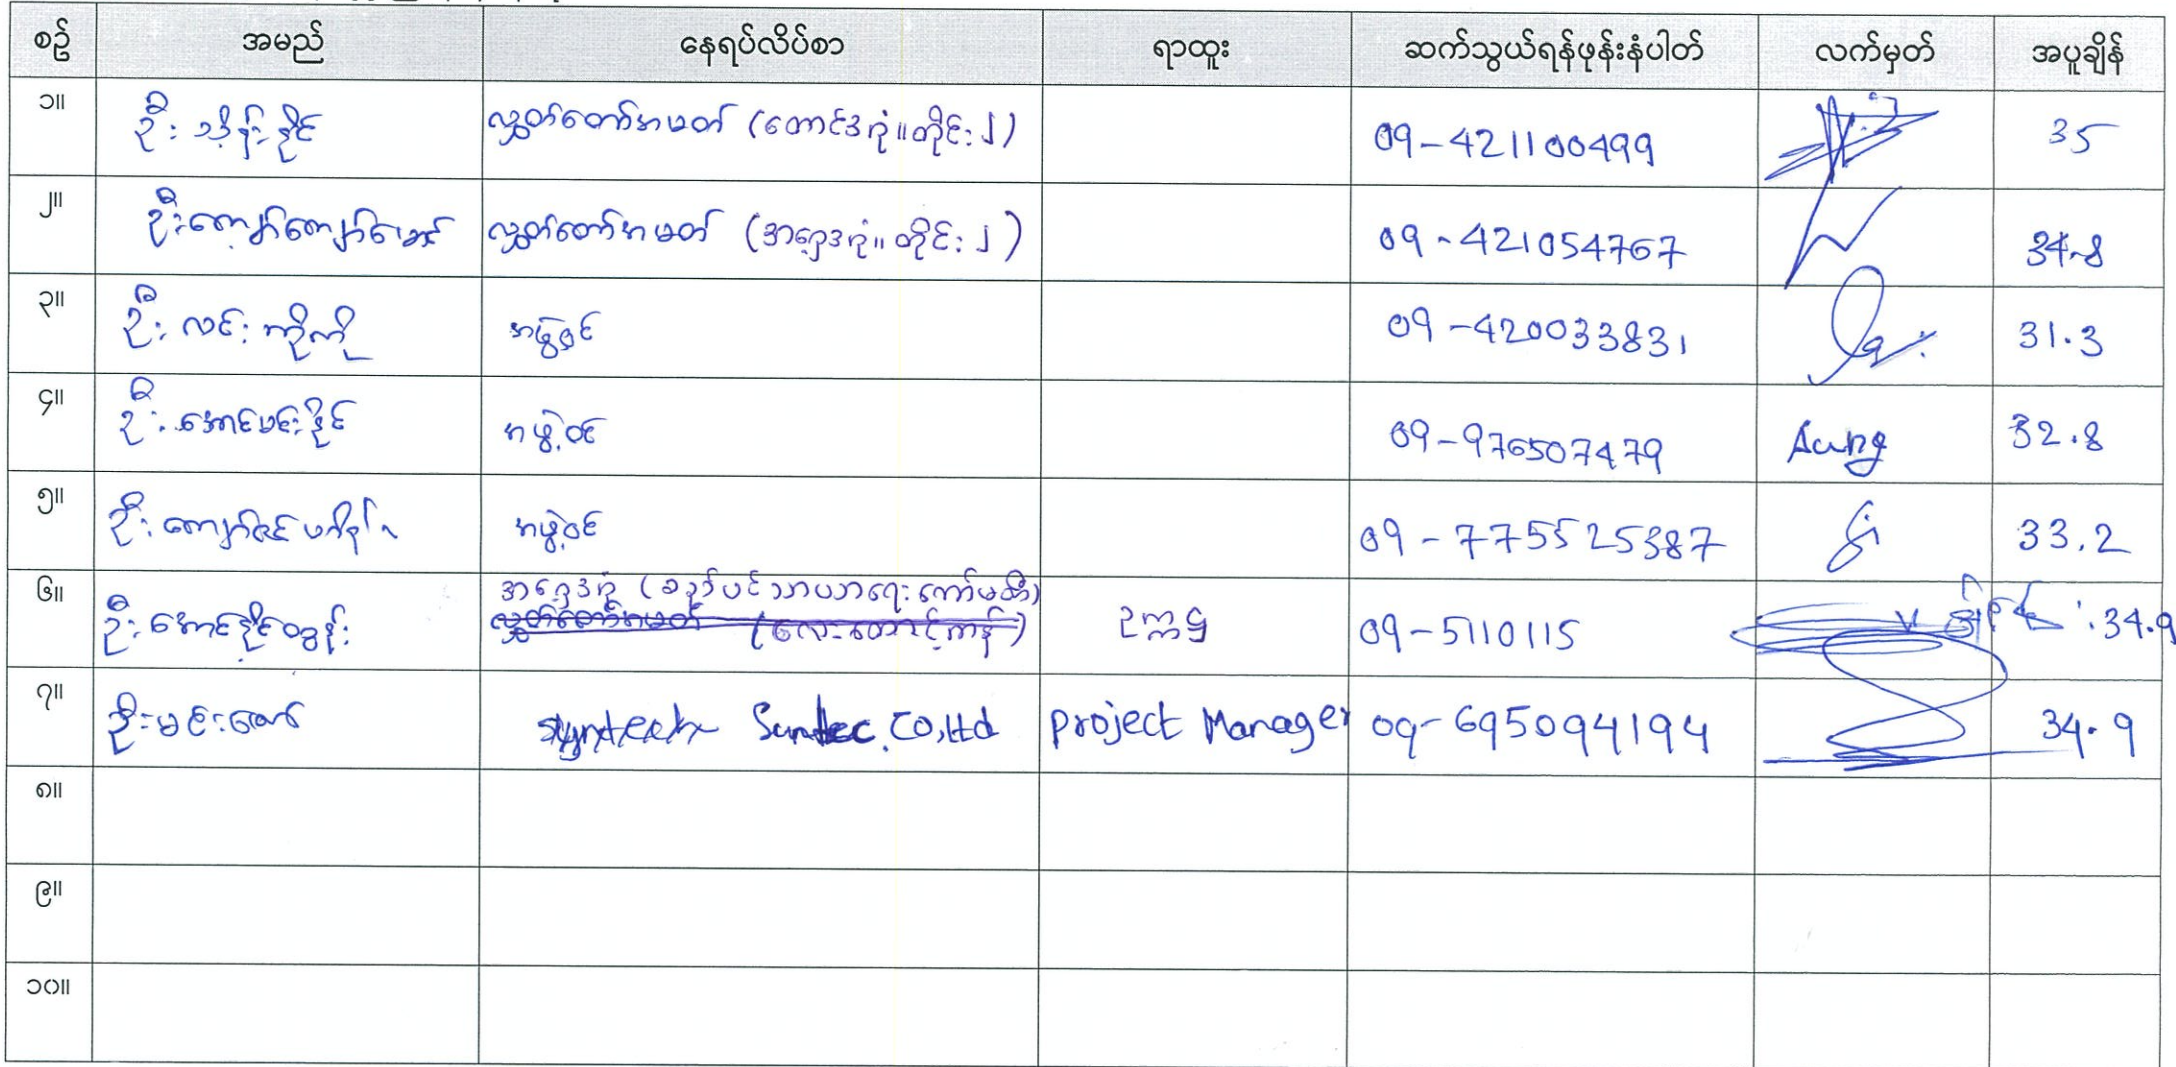 စဥ် အမည် နေရပ်လိပ်စာ ရာထူး ဆက်သွယ်ရန်ဖုန်းနံပါတ် လက်မှတ် အပူချိန်
၁။ ဦးသိန်းနိုင် လွှတ်တော်အမတ် (တောင်ဒဂုံ။တိုင်း၂) 09-421100499 35
၂။ ဦးကျော်ကျော် လွှတ်တော်အမတ် (အရှေ့ဒဂုံ။တိုင်း၂) 09-421054767 34.8
၃။ ဦးလင်းကိုကို အဖွဲ့ဝင် 09-420033831 31.3
၄။ ဦးအောင်မင်းနိုင် အဖွဲ့ဝင် 09-976507479 Aung 32.8
၅။ ဦးကျော်ဇင် အဖွဲ့ဝင် 09-775525387 33.2
အရှေ့ဒဂုံ (စည်ပင်သာယာရေးကော်မတီ)
၆။ ဦးအောင်နိုင်ထွန်း လွှတ်တော်အမတ် ဥက္ကဋ္ဌ 09-5110115 34.9
၇။ ဦးမင်းဇော် Suntec Co,Ltd Project Manager 09-695094194 34.9
၈။
၉။
၁၀။